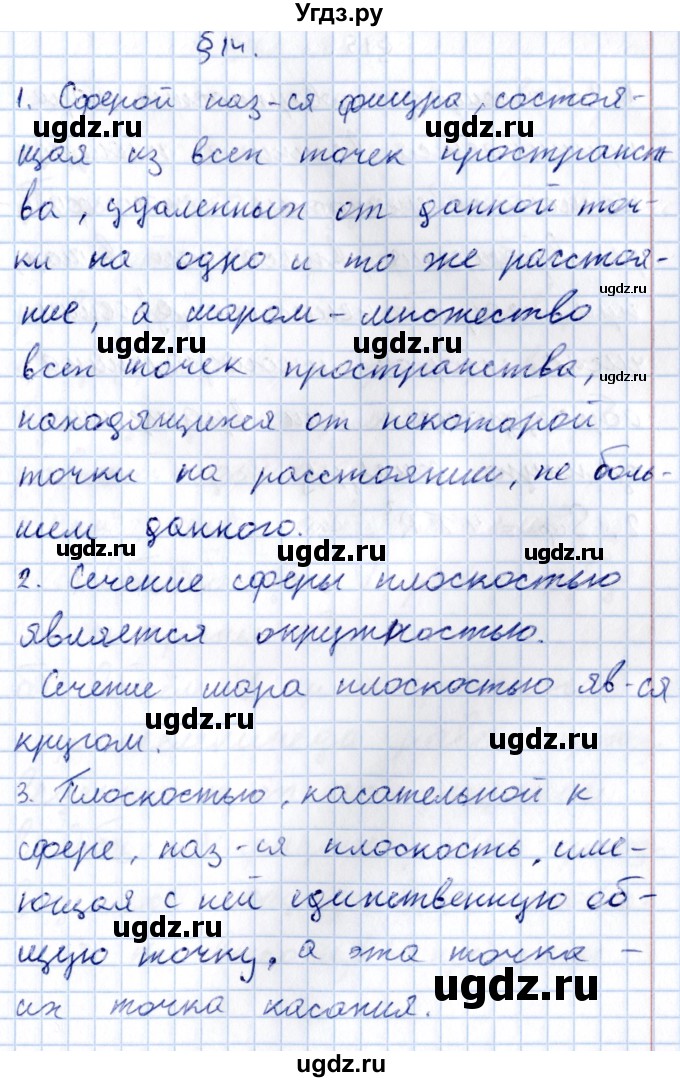 Угдз.ру
§14.
1. Сферой наз-ся фигура, состоя-
ugdz.ru ugdz.ru
щая из всех точек пространст
ва, удаленных от данной точ-
ки на одно и то же расстоя-
ugdz.ru
ние, а шаром – множество
ugdz.ru ugdz.ru
всех точек пространства,
ugdz.ru
находящихся от некоторой
точки на расстоянии, не боль-
шем данного.
ugdz.ru ugdz.ru
2. Сечение сферы плоскостью
является окружностью.
Сечение шара плоскостью яв-ся
ugdz.ru ugdz.ru
кругом.
3. Плоскостью, касательной к
сфере, наз-ся плоскость, име-
ющая с ней единственную об-
ugdz.ru ugdz.ru
щую точку, а эта точка –
их точка касания.
ugdz.ru
ugdz.ru